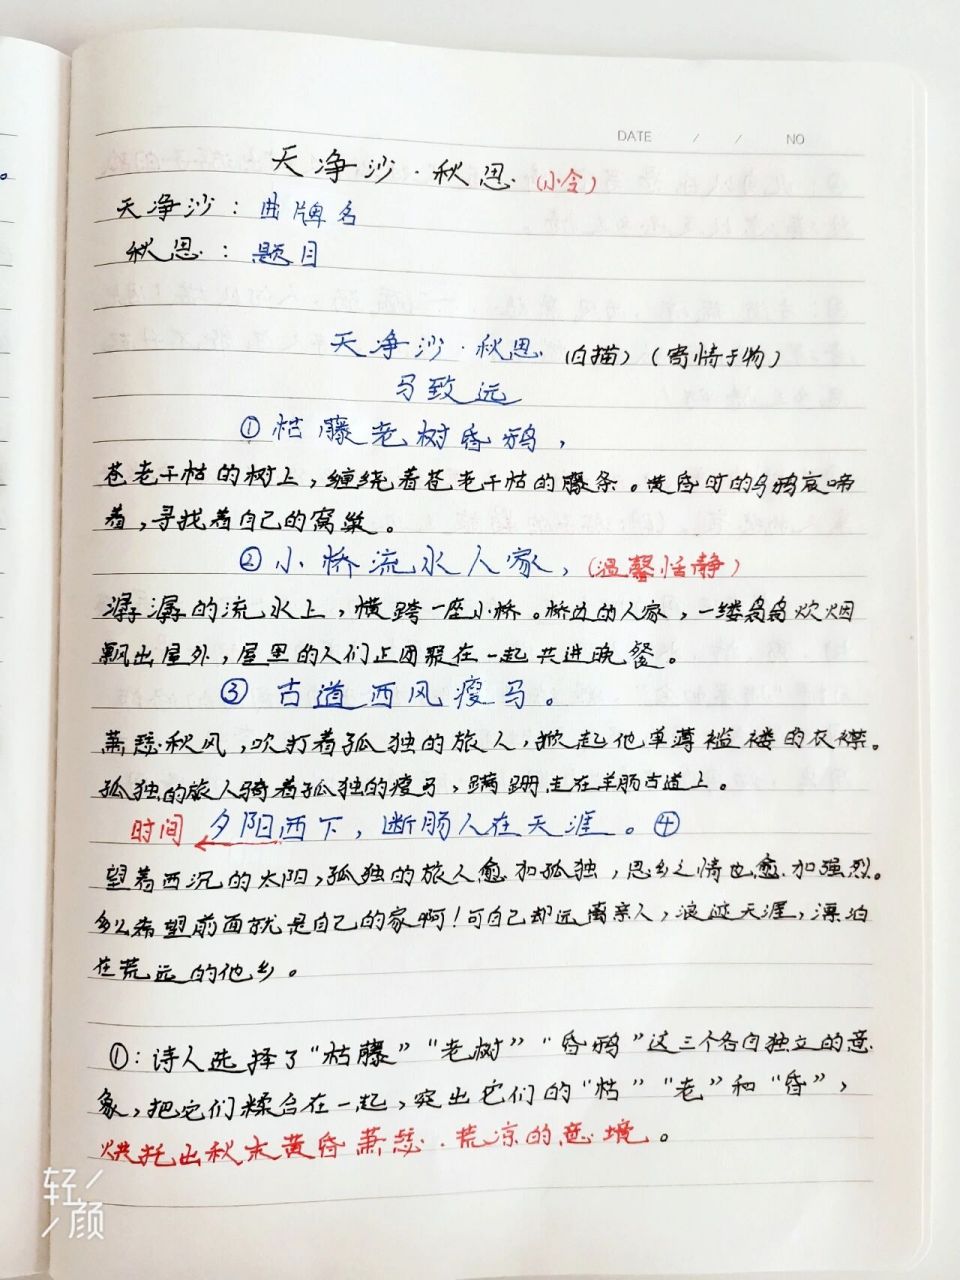 DATE / / NO
天净沙·秋思(小令)
天净沙：曲牌名
秋思：题目
天净沙·秋思(白描)(寄情于物)
马致远
①枯藤老树昏鸦，
苍老干枯的树上，缠绕着苍老干枯的藤条。黄昏时的乌鸦哀啼
着，寻找着自己的窝巢。
②小桥流水人家，(温馨恬静)
潺潺的流水上，横跨一座小桥。桥边的人家，一缕袅袅炊烟
飘出屋外，屋里的人们正团聚在一起共进晚餐。
③古道西风瘦马。
萧瑟秋风，吹打着孤独的旅人，掀起他单薄褴褛的衣襟。
孤独的旅人骑着孤独的瘦马，蹒跚走在羊肠古道上。
时间 夕阳西下，断肠人在天涯。④
望着西沉的太阳，孤独的旅人愈加孤独，思乡之情也愈加强烈。
多么希望前面就是自己的家啊！可自己却远离亲人，浪迹天涯，漂泊
在荒远的他乡。
①：诗人选择了“枯藤”“老树”“昏鸦”这三个各自独立的意
象，把它们糅合在一起，突出它们的“枯”“老”和“昏”，
烘托出秋末黄昏萧瑟.荒凉的意境。
轻
颜